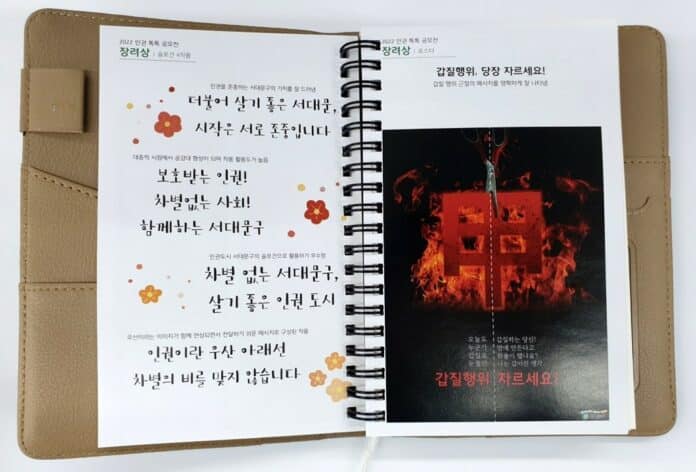 2022 인권 톡톡 공모전
장려상 | 슬로건 4작품
인권을 존중하는 서대문구의 가치를 잘 드러냄
더불어 살기 좋은 서대문,
시작은 서로 존중입니다
대중적 시점에서 공감대 형성이 되며 작품 활용도가 높음
보호받는 인권!
차별없는 사회!
함께하는 서대문구
인권도시 서대문구의 슬로건으로 활용하기 우수함
차별 없는 서대문구,
살기 좋은 인권 도시
우산이라는 이미지가 함께 연상되면서 전달하기 쉬운 메시지로 구성된 작품
인권이란 우산 아래선
차별의 비를 맞지 않습니다
2022 인권 톡톡 공모전
장려상 | 포스터
갑질행위, 당장 자르세요!
갑질 행위 근절의 메시지를 명확하게 잘 나타냄
甲
오늘도 갑질하는 당신!
누군가
갑질로
갑질행위 자르세요!